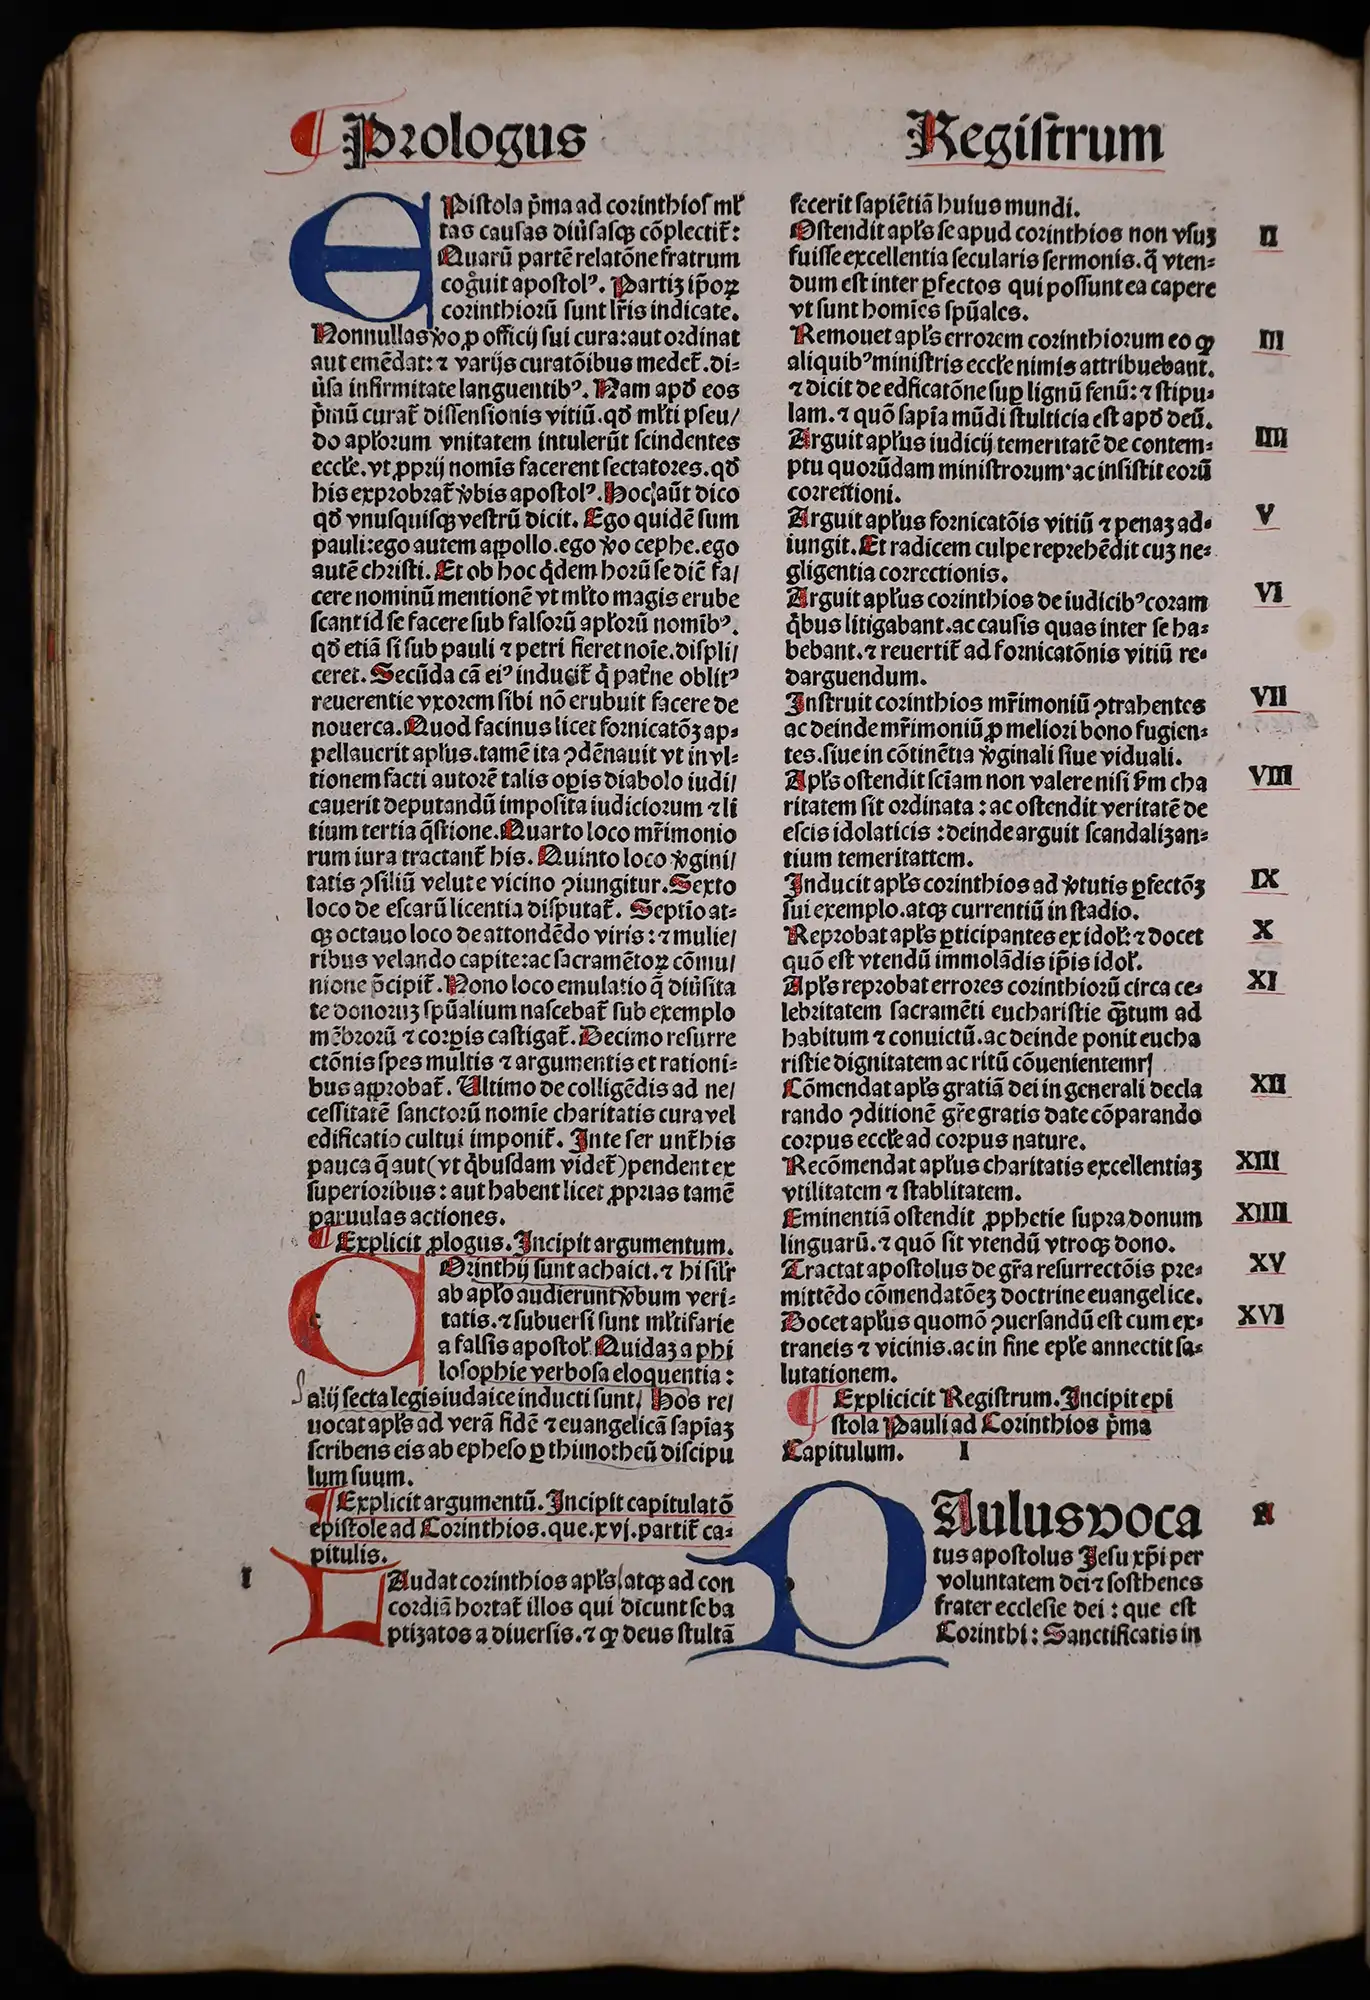 ¶ Prologus
EPistola p̄ma ad corinthios ml̄
tas causas diu̇sasqꝫ cōplectit̄:
Quarū partē relatōne fratrum
cogͦuit apostolꝰ. Partiꝫ ip̄oꝝ
corinthiorū sunt lr̄is indicate.
Nonnullas v̊o ꝓ officij sui cura: aut ordinat
aut emēdat: ⁊ varijs curatōibus medet̄. di⸗
u̇sa infirmitate languentibꝰ. Nam apd̄ eos
p̄mū curat̄ dissensionis vitiū. qd̄ ml̄ti pseu/
do apl̄orum vnitatem intulerūt scindentes
eccl̄e. vt ꝓprij nomīs facerent sectatores. qd̄
his exprobrat̄ v̊bis apostolꝰ. Hoc aūt dico
qd̄ vnusquisqꝫ vestrū dicit. Ego quidē sum
pauli: ego autem appollo. ego v̊o cephe. ego
autē christi. Et ob hoc q̇dem horū se dic̄ fa/
cere nominū mentionē vt ml̄to magis erube
scant id se facere sub falsorū apl̄orū nomīibꝰ.
qd̄ etiā si sub pauli ⁊ petri fieret noīe. displi/
ceret. Secūda cā eiꝰ inducit̄ q̇ pat̄ne oblitꝰ
reuerentie vxorem sibi nō erubuit facere de
nouerca. Quod facinus licet fornicatōꝫ ap⸗
pellauerit apl̄us. tamē ita ꝯdēnauit vt in vl⸗
tionem facti autorē talis oꝑis diabolo iudi/
cauerit deputandū imposita iudiciorum ⁊ li
tium tertia q̄stione. Quarto loco mr̄imonio
rum iura tractant̄ his. Quinto loco v̊gini/
tatis ꝯsiliū velut e vicino ꝯiungitur. Sexto
loco de escarū licentia disputat̄. Septīo at⸗
qꝫ octauo loco de attondēdo viris: ⁊ mulie/
ribus velando capite: ac sacramētoꝝ cōmu/
nione p̄cipit̄. Nono loco emulatio q̄ diu̇sita
te donoruꝫ spūalium nascebat̄ sub exemplo
mēbrorū ⁊ corꝑis castigat̄. Decimo resurre
ctōnis spes multis ⁊ argumentis et rationi⸗
bus approbat̄. Ultimo de colligēdis ad ne/
cessitatē sanctorū nomīe charitatis cura vel
edificatio cultui imponit̄. Inte ser unt̄ his
pauca q̄ aut (vt q̇busdam videt̄) pendent ex
superioribus: aut habent licet ꝓprias tamē
paruulas actiones.
¶ Explicit ꝓlogus. Incipit argumentum.
COrinthij sunt achaici. ⁊ hi sil̄r
ab apl̄o audierunt v̊bum veri⸗
tatis. ⁊ subuersi sunt ml̄tifarie
a falsis apostol̄. Quidaꝫ a phi
losophie verbosa eloquentia:
alij secta legis iudaice inducti sunt/ Hos re/
uocat apl̄s ad verā fidē ⁊ euangelicā sapiaꝫ
scribens eis ab epheso ꝑ thimotheū discipu
lum suum.
¶ Explicit argumentū. Incipit capitulatō
epistole ad Corinthios. que. xvj. partit̄ ca⸗
pitulis.
I LAudat corinthios apl̄s/ atqꝫ ad con
cordiā hortat̄ illos qui dicunt se ba
ptizatos a diuersis. ⁊ ꝙ deus stultā
Registrum
fecerit sapiētiā huius mundi.
Ostendit apl̄s se apud corinthios non vsuꝫ II
fuisse excellentia secularis sermonis. q̄ vten⸗
dum est inter ꝑfectos qui possunt ea capere
vt sunt homīes spūales.
Remouet apl̄s errorem corinthiorum eo ꝙ III
aliquibꝰ ministris eccl̄e nimis attribuebant.
⁊ dicit de edficatōne suꝑ lignū fenū: ⁊ stipu⸗
lam. ⁊ quō sapīa mūdi stulticia est apd̄ deū.
Arguit apl̄us iudicij temeritatē de contem⸗ IIII
ptu quorūdam ministrorum ac insistit eorū
correctioni.
Arguit apl̄us fornicatōis vitiū ⁊ penaꝫ ad⸗ V
iungit. Et radicem culpe reprehēdit cuꝫ ne⸗
gligentia correctionis.
Arguit apl̄us corinthios de iudicibꝰ coram VI
q̇bus litigabant. ac causis quas inter se ha⸗
bebant. ⁊ reuertit̄ ad fornicatōnis vitiū re⸗
darguendum.
Instruit corinthios mr̄imoniū ꝯtrahentes VII
ac deinde mr̄imoniū ꝓ meliori bono fugien⸗
tes. siue in cōtinētia v̊ginali siue viduali.
Apl̄s ostendit sciam non valere nisi ẜm cha VIII
ritatem sit ordinata: ac ostendit veritatē de
escis idolaticis: deinde arguit scandalizan⸗
tium temeritattem.
Inducit apl̄s corinthios ad v̊tutis ꝑfectōꝫ IX
sui exemplo. atqꝫ currentiū in stadio.
Reprobat apl̄s ꝑticipantes ex idol̄: ⁊ docet X
quō est vtendū immolādis ip̄is idol̄.
Apl̄s reprobat errores corinthiorū circa ce⸗ XI
lebritatem sacramēti eucharistie qꝫtum ad
habitum ⁊ conuictū. ac deinde ponit eucha
ristie dignitatem ac ritū cōuenientemr/
Cōmendat apl̄s gratiā dei in generali decla XII
rando ꝯditionē gr̄e gratis date cōparando
corpus eccl̄e ad corpus nature.
Recōmendat apl̄us charitatis excellentiaꝫ XIII
vtilitatem ⁊ stablitatem.
Eminentiā ostendit ꝓphetie supra donum XIIII
linguarū. ⁊ quō sit vtendū vtroqꝫ dono.
Tractat apostolus de gr̄a resurrectōis pre⸗ XV
mittēdo cōmendatōeꝫ doctrine euangelice.
Docet apl̄us quomō ꝯuersandū est cum ex⸗ XVI
traneis ⁊ vicinis. ac in fine epl̄e annectit sa⸗
lutationem.
¶ Explicicit Registrum. Incipit epi
stola Pauli ad Corinthios p̄ma
Capitulum. I
PAulus voca A
tus apostolus Jesu xp̄i per
voluntatem dei ⁊ sosthenes
frater ecclesie dei: que est
Corinthi: Sanctificatis in